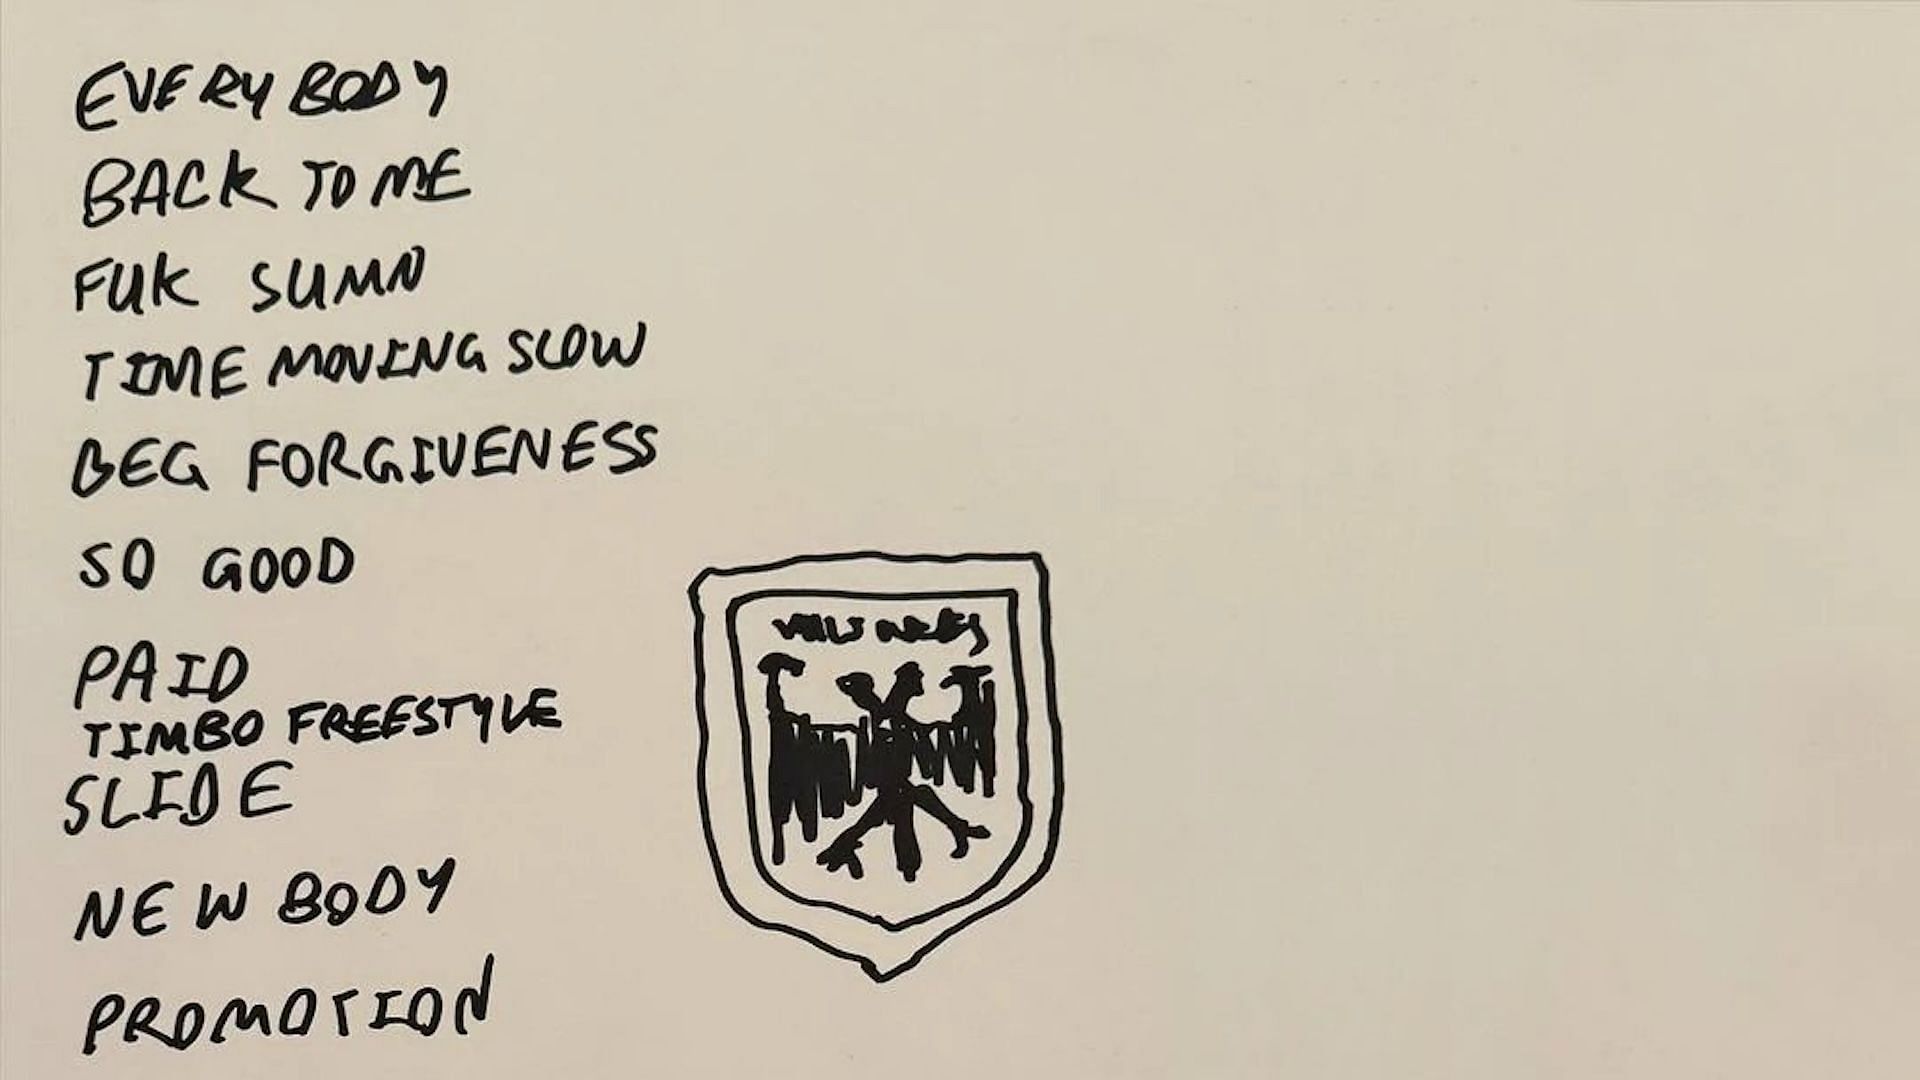 EVERYBODY
BACK TO ME
FUK SUMN
TIME MOVING SLOW
BEG FORGIVENESS
SO GOOD
PAID
TIMBO FREESTYLE
SLIDE
NEW BODY
PROMOTION